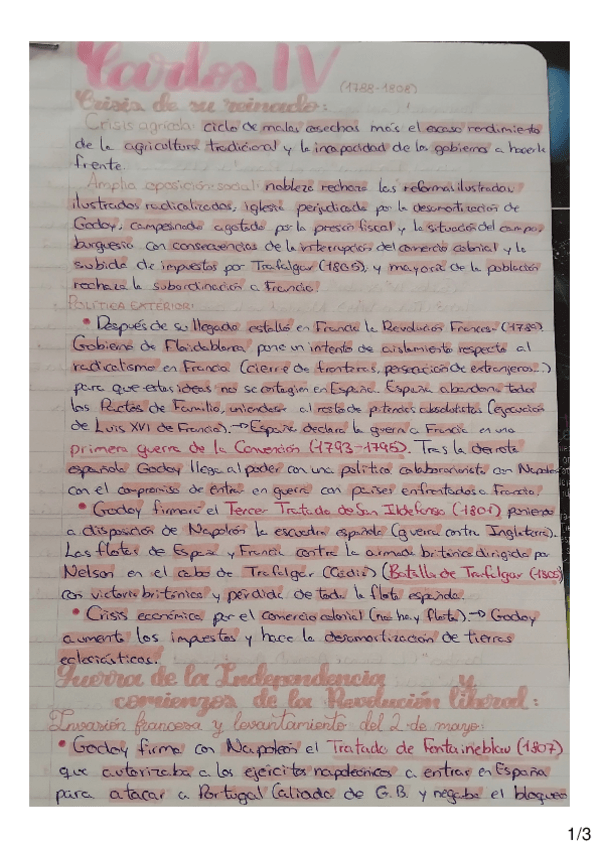 Carlos IV (1788-1808)
Crisis de su reinado:
Crisis agrícola: ciclo de malas cosechas más el escaso rendimiento
de la agricultura tradicional y la incapacidad de los gobierno a hacerle
frente.
Amplia oposición social: nobleza rechaza las reformas ilustradas,
ilustrados radicalizados, iglesia perjudicada por la desamortización de
Godoy, campesinado agotado por la presión fiscal y la situación del campo,
burguesía con consecuencias de la interrupción del comercio colonial y la
subida de impuestos por Trafalgar (1805), y mayoría de la población
rechaza la subordinación a Francia.
POLÍTICA EXTERIOR:
• Después de su llegada estalló en Francia la Revolución Francesa (1789)
Gobierno de Floridablanca pone un intento de aislamiento respecto al
radicalismo en Francia (cierre de fronteras, persecución de extranjeros...)
para que estas ideas no se contagien en España. España abandona todos
los Pactos de Familia, uniendose al resto de potencias absolutistas (ejecución
de Luis XVI de Francia). → España declara la guerra a Francia en una
primera guerra de la Convención (1793-1795). Tras la derrota
española Godoy llega al poder con una política colaboracionista con Napoleón
con el compromiso de entrar en guerra con países enfrentados a Francia.
• Godoy firmará el Tercer Tratado de San Ildefonso (1801) poniendo
a disposición de Napoleón la escuadra española (guerra contra Inglaterra).
Las flotas de España y Francia contra la armada británica dirigida por
Nelson en el cabo de Trafalgar (Cádiz) (Batalla de Trafalgar (1805)
con victoria británica y pérdida de toda la flota española.
• Crisis económica por el comercio colonial (no hay flota). → Godoy
aumenta los impuestos y hace la desamortización de tierras
eclesiásticas.
Guerra de la Independencia y
comienzos de la Revolución liberal:
Invasión francesa y levantamiento del 2 de mayo:
• Godoy firma con Napoleón el Tratado de Fontainebleau (1807)
que autorizaba a los ejércitos napoleónicos a entrar en España
para atacar a Portugal (aliada de G.B. y negaba el bloqueo
1/3